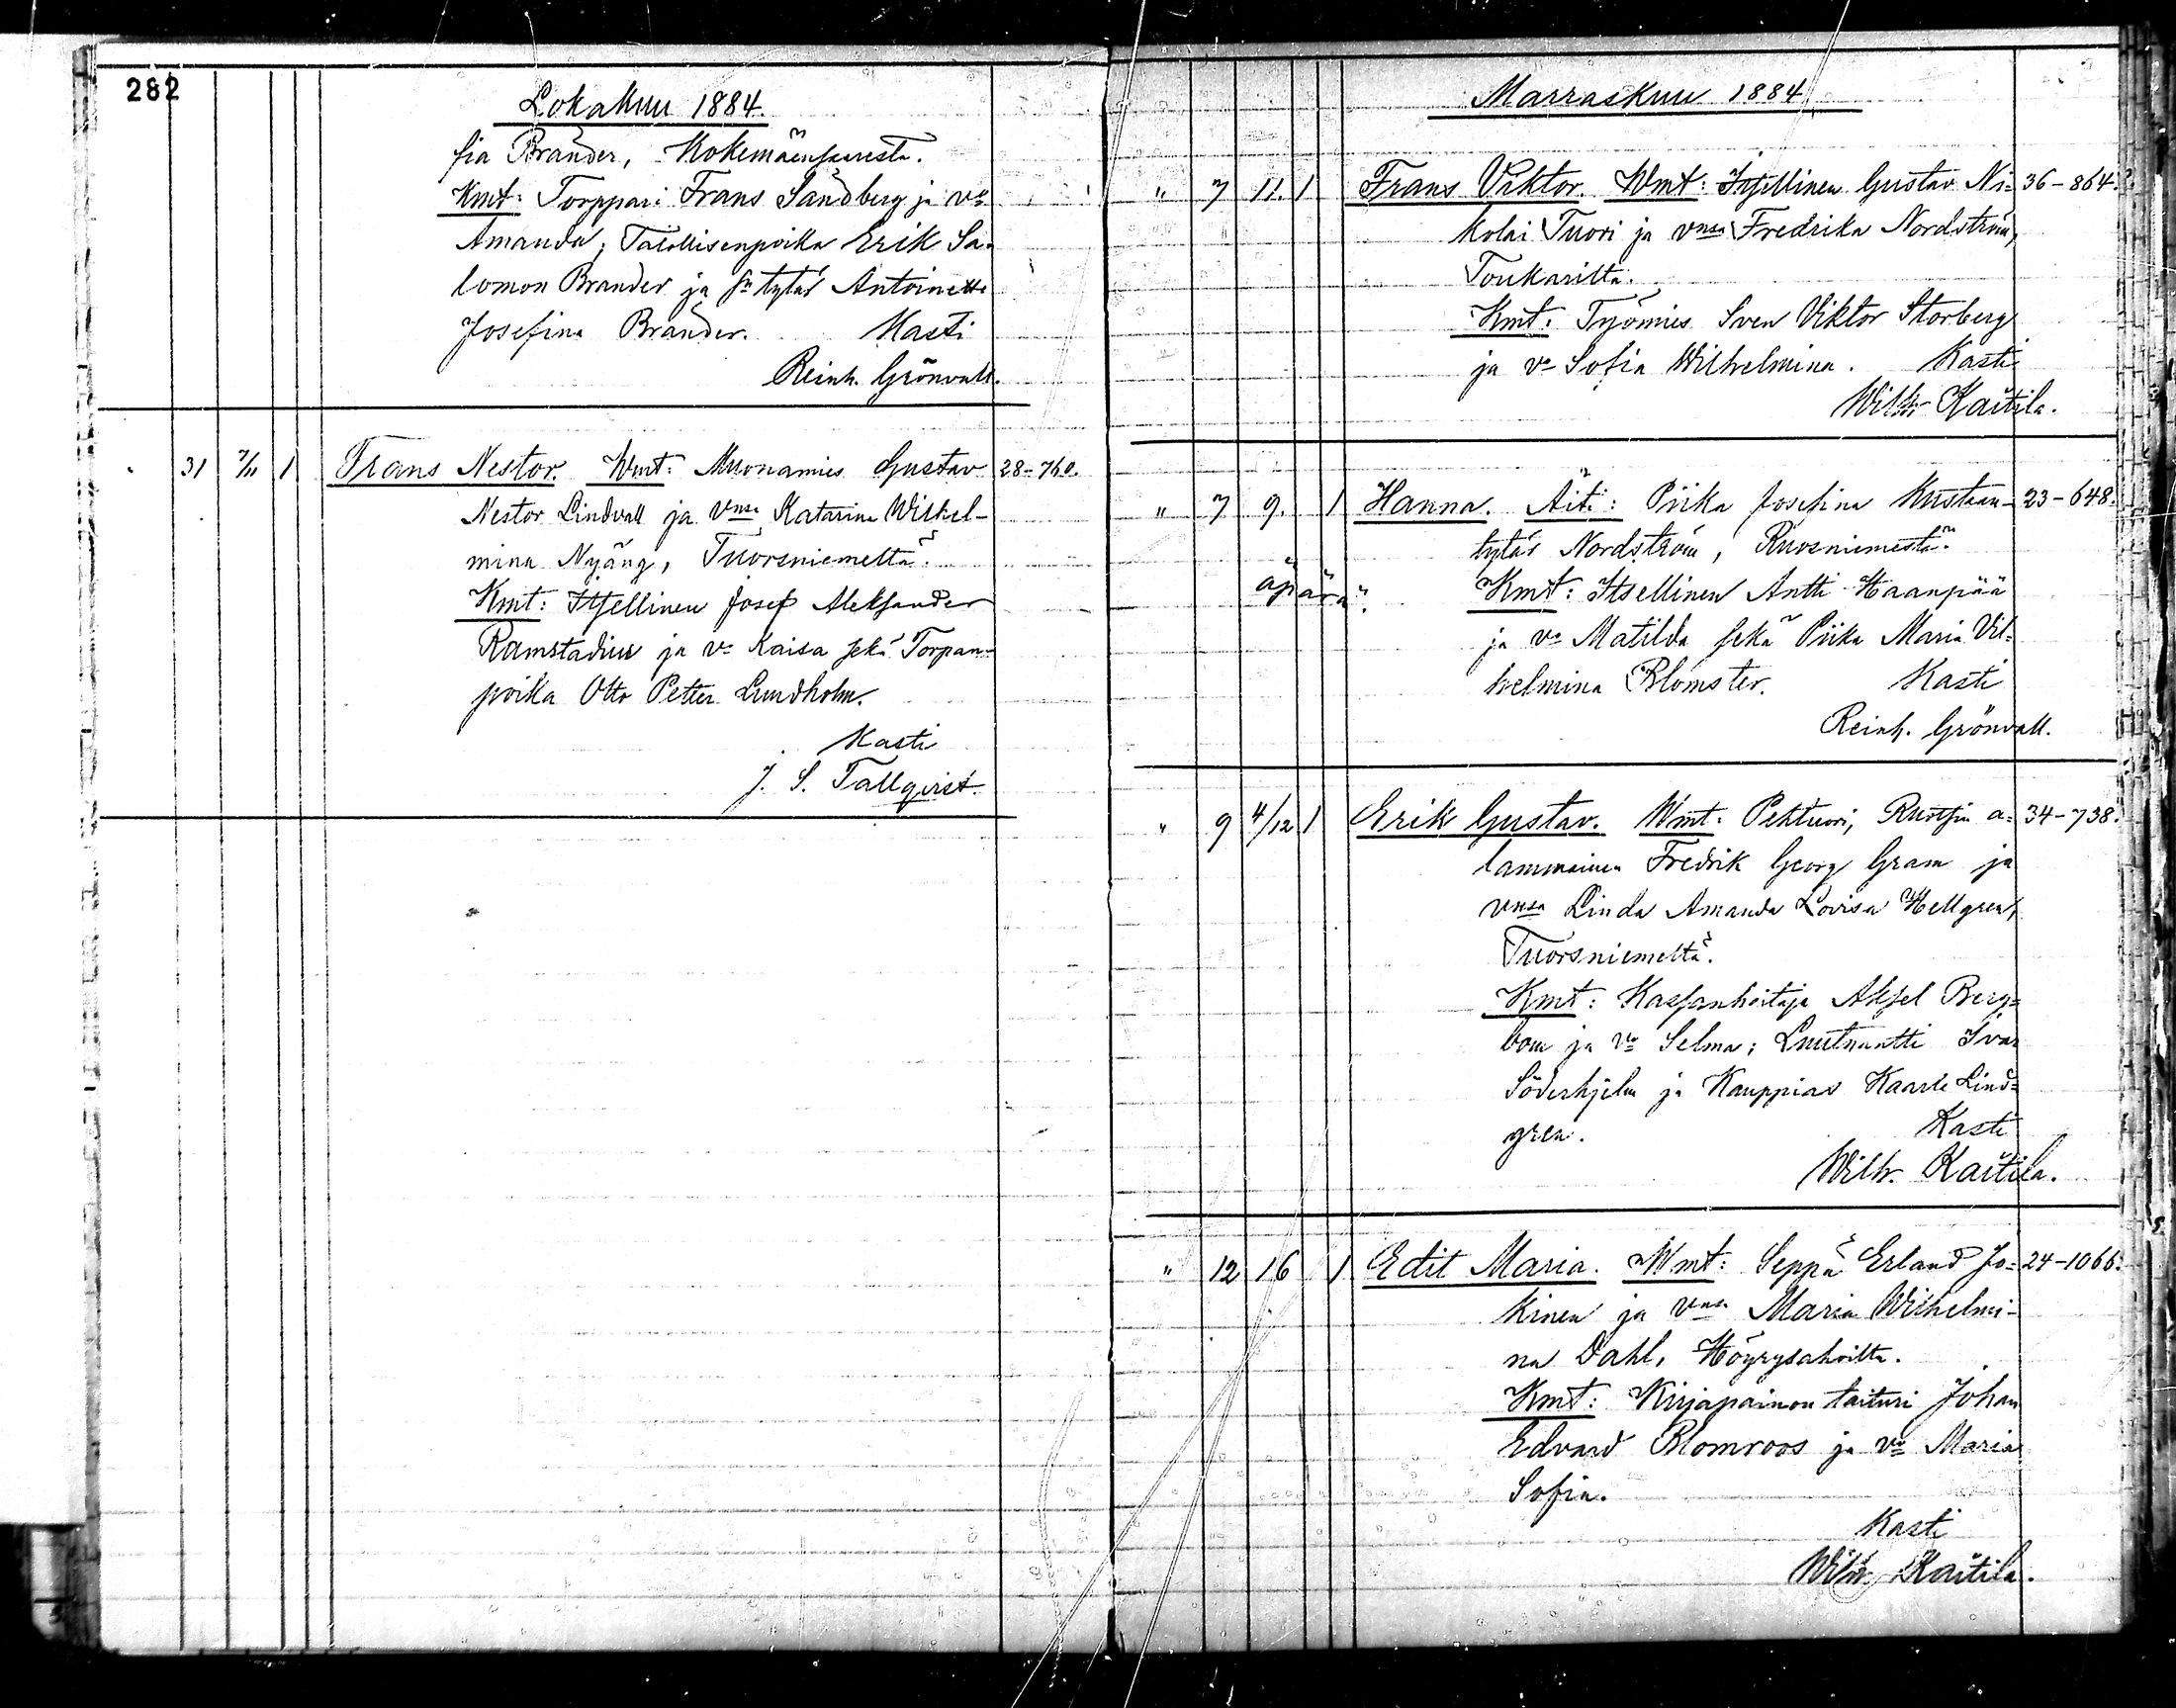 282
Lokakuu 1884.
fia Brander, Kokemäensaaresta.
Kmt: Torppari Frans Sandberg ja vo
Amanda; Talollisenpoika Erik Sa-
lomon Brander ja sn tytär Antoinette
Josefina Brander. Kasti
Reinh. Grönvall.
" 31 7/11 1 Frans Nestor. Wmt: Muonamies Gustav 28-760.
Nestor Lindvall ja vnsa Katarina Wilhel-
mina Nyäng, Tuorsniemeltä.
Kmt: Itsellinen Josef Aleksander
Ramstadius ja vo Kaisa sekä Torpan-
poika Otto Petter Lundholm.
Kasti
J. S. Tallqvist.
Marraskuu 1884
" 7 11. 1 Frans Viktor. Wmt: Itsellinen Gustav Ni- 36-864.
kolai Tuori ja vnsa Fredrika Nordström,
Toukarilta.
Kmt: Työmies Sven Viktor Storberg
ja vo Sofia Wilhelmina. Kasti
Wilh. Kaitila.
" 7 9. 1 Hanna. Äiti: Piika Josefina Kustaan- 23-648.
tytär Nordström, Ruosniemestä.
äpärä. Kmt: Itsellinen Antti Haanpää
ja vo Matilda sekä Piika Maria Vil-
helmina Blomster. Kasti
Reinh. Grönvall.
" 9 4/12 1 Erik Gustav. Wmt: Pehtuori, Ruotsin a- 34-738.
lammainen Fredrik Georg Gram ja
vnsa Linda Amanda Lovisa Hellgren,
Tuorsniemeltä.
Kmt: Kassanhoitaja Aksel Berg-
bom ja vo Selma; Luutnantti Ivar
Söderhjelm ja Kauppias Kaarle Lind-
gren. Kasti
Wilh. Kaitila.
" 12 16 1 Edit Maria. Wmt: Seppä Erland Jo- 24-1066.
kinen ja vnsa Maria Wilhelmi-
na Dahl, Höyrysahoilta.
Kmt: Kirjapainon taituri Johan
Edvard Blomroos ja vo Maria
Sofia.
Kasti
Wilh. Kaitila.